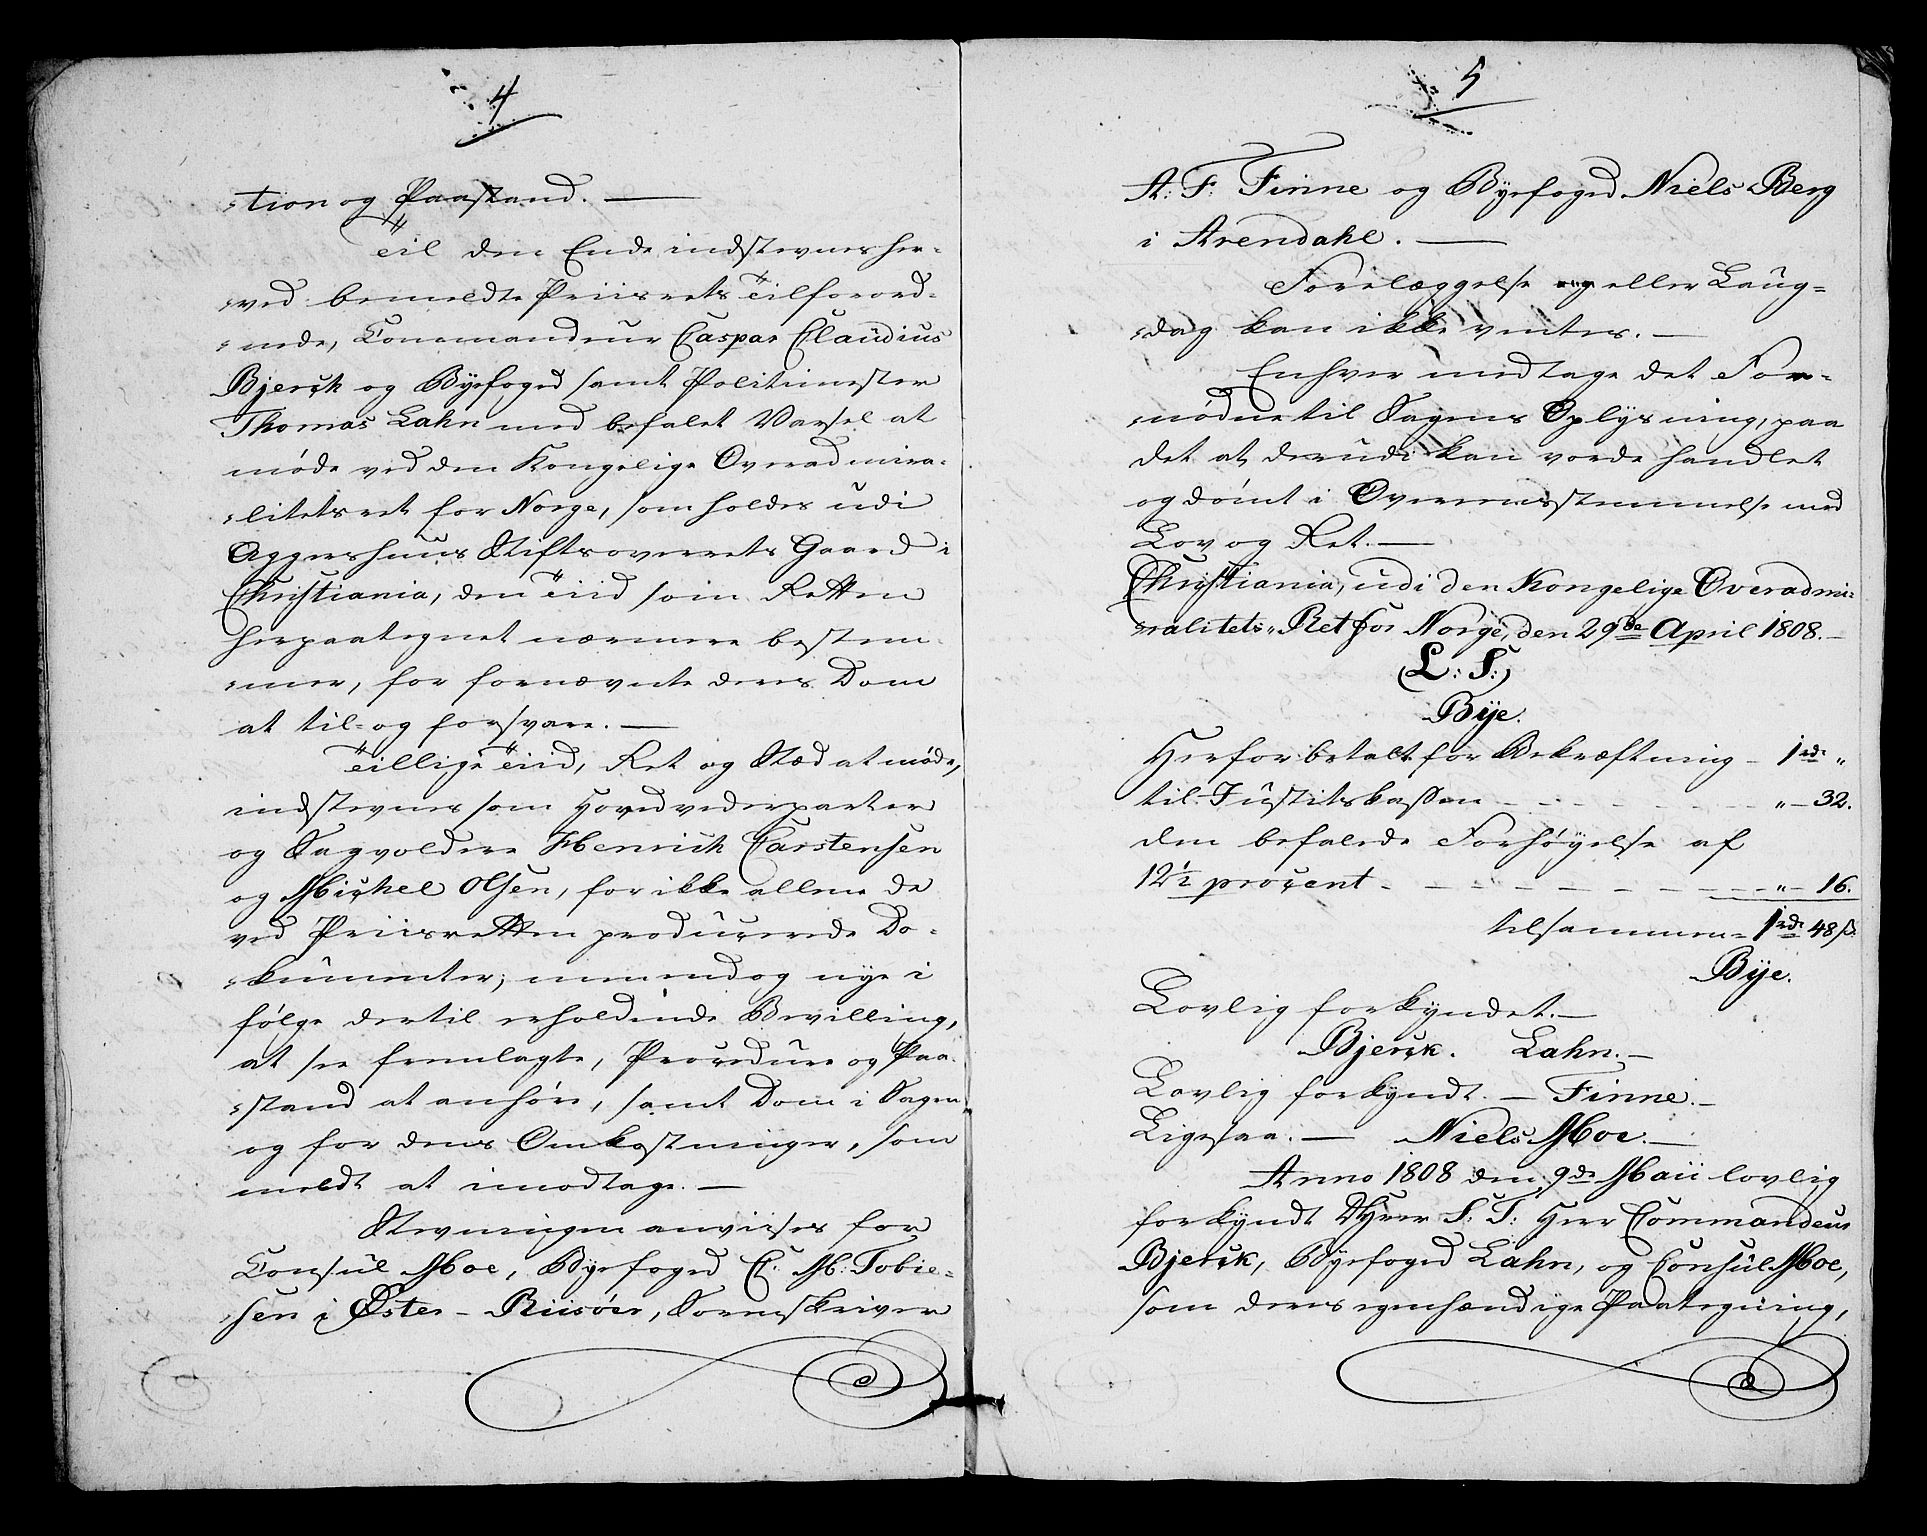 4
-tion og Paastand. —
Til den Ende indstevnes her-
-ved bemeldte Priisrets Tilforord-
-nede, Commandeur Caspar Claudius
Bjerck og Byefoged samt Politimester
Thomas Lahn med befalet Varsel at
møde ved den Kongelige Overadmira-
-litetsret for Norge, som holdes udi
Aggershuus Stiftsoverrets Gaard i
Christiania, den Tiid som Retten
herpaategnet nærmere bestem-
-mer, for fornævnte deres Dom
at til- og forsvare. —
Tillige Tiid, Ret og Stæd at møde,
indstevnes som Hovedvederparter
og Sagvoldere Henrich Carstensen
og Michel Olsen, for ikke allene de
ved Priisretten producerede Do-
-kumenter, men endog nye i
følge dertil erholdende Bevilling,
at see fremlagte, Procedure og Paa-
-stand at anhøre, samt Dom i Sagen
og for dens Omkostninger, som
meldt at imodtage. —
Stevningen anviises for
Consul Moe, Byefoged C. M: Tobie-
-sen i Øster-Riisøer, Sorenskriver
5
A: F: Finne og Byefoged Niels Berg
i Arendahl. —
Forelæggelse og eller Laug-
-dag kan ikke ventes. —
Enhver medtage det For-
-nødne til Sagens Oplysning, paa
det at derudi kan vorde handlet
og dømt i Overeensstemmelse med
Lov og Ret. —
Christiania, udi den Kongelige Overadmi-
-ralitets-Ret for Norge, den 29de April 1808. —
(L: S:)
Bye.
Herfor betalt for Bekræftning - 1 rdr "
til Justitskassen - - - - " - 32.
den befalede Forhøyelse af
12½ procent - - - - " - 16.
tilsammen = 1 rdr 48 s:
Bye.
Lovlig forkyndet. —
Bjerck. Lahn. —
Lovlig forkyndt. — Finne. —
Ligesaa. — Niels Moe. —
Anno 1808 den 9de Maii lovlig
forkyndt Herr S: T: Herr Commandeur
Bjerck, Byefoged Lahn, og Consul Moe,
som deres egenhændige Paategning,